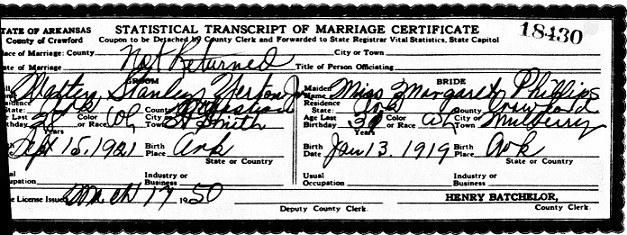 STATE OF ARKANSAS
County of Crawford
STATISTICAL TRANSCRIPT OF MARRIAGE CERTIFICATE
Coupon to be Detached by County Clerk and Forwarded to State Registrar Vital Statistics, State Capitol
18430
Place of Marriage: County Not Returned City or Town
Date of Marriage Title of Person Officiating
GROOM BRIDE
Stanley Maiden Name Miss Margaret Phillips
Residence State Ark County Residence State Ark County Crawford
Age Last Birthday 28 Years Color or Race Wh City Town Ft Smith Age Last Birthday 30 Years Color or Race Wh City Town Mulberry
Sept 15. 1921 Birth Place Ark State or Country Birth Date Jan 13. 1919 Birth Place Ark State or Country
Usual Occupation Industry or Business Usual Occupation Industry or Business
License Issued March 17 1950 HENRY BATCHELOR,
Deputy County Clerk. County Clerk.